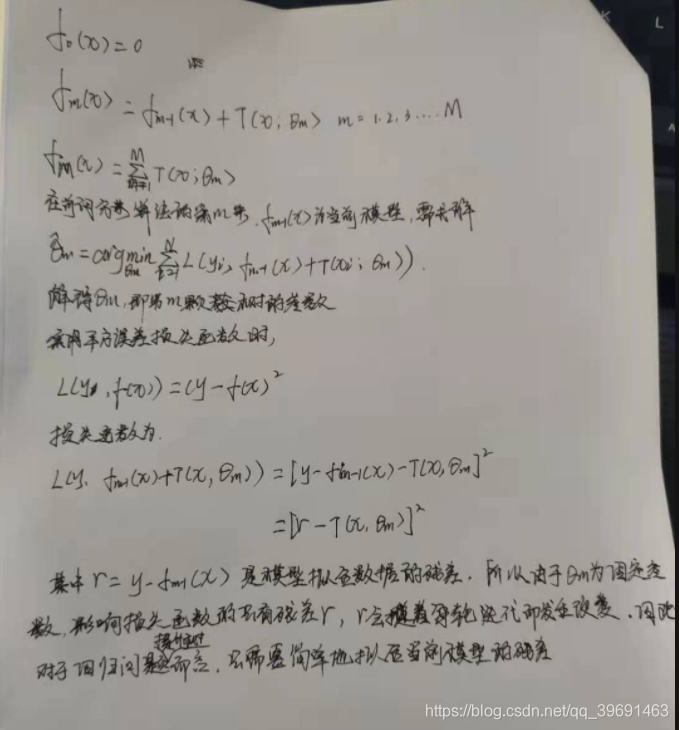 f₀(x) = 0
fₘ(x) = fₘ₋₁(x) + T(x; θₘ) m = 1, 2, 3 .... M
fₘ(x) = Σ T(x; θₘ)
在前向分步算法的第m步, fₘ₋₁(x)为当前模型, 需求解
θ̂ₘ = argmin Σ L(yᵢ, fₘ₋₁(x) + T(xᵢ; θₘ)).
解得θₘ, 即第m颗树的参数
采用平方误差损失函数时,
L(y, f(x)) = (y - f(x))²
损失函数为.
L(y, fₘ₋₁(x) + T(x, θₘ)) = [y - fₘ₋₁(x) - T(x, θₘ)]²
= [r - T(x, θₘ)]²
其中 r = y - fₘ₋₁(x) 是模型拟合数据的残差. 所以由于θₘ为固定参
数, 影响损失函数的只有残差r, r会随着每轮迭代而发生改变. 因此
对于回归问题而言, 只需要简单地拟合当前模型的残差
https://blog.csdn.net/qq_39691463